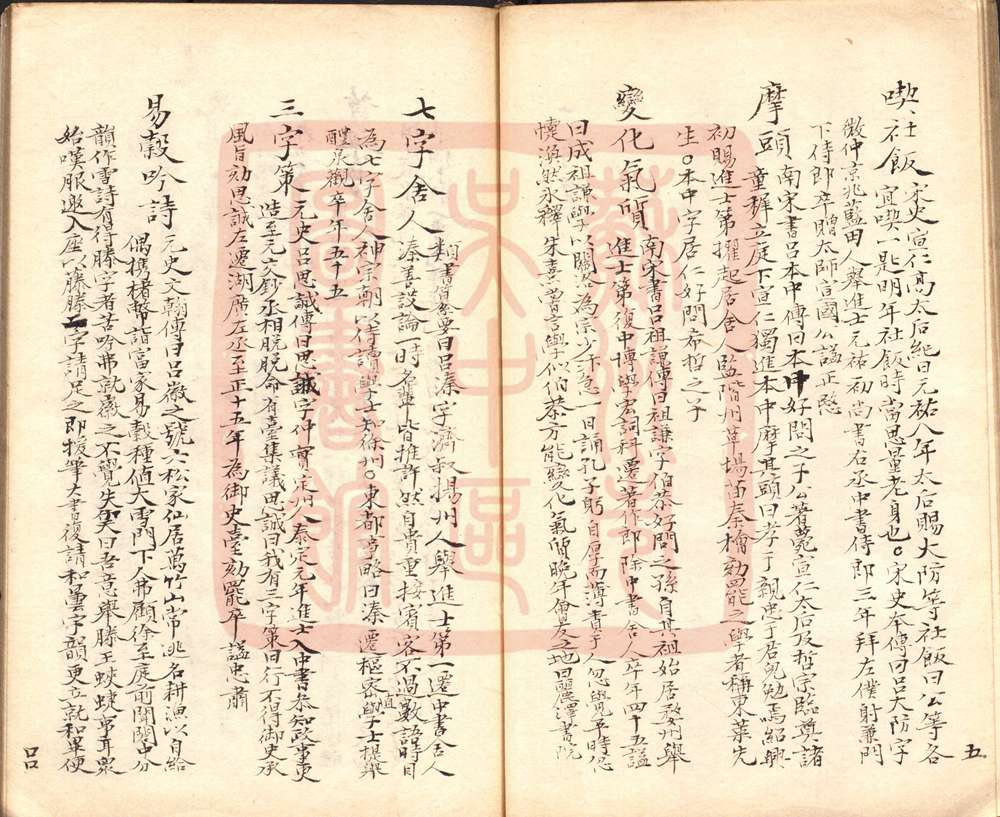 五
喫社飯 宋史宣仁高太后紀曰元祐八年太后賜大防等社飯曰公等各
宜喫一匙明年社飯時當思量老身也○宋史本傳曰呂大防字
微仲京兆藍田人舉進士元祐初尚書右丞中書侍郎三年拜左僕射兼門
下侍郎卒贈太師宣國公謚正愍
摩頭 南宋書呂本中傳曰本中好問之子公著薨宣仁太后及哲宗臨奠諸
童穉立庭下宣仁獨進本中摩其頭曰孝于親忠于君兒勉焉紹興
初賜進士第擢起居舍人監階州草場苗秦檜劾罷之學者稱東萊先
生○本中字居仁好問希哲之子
變化氣質 南宋書呂祖謙傳曰祖謙字伯恭好問之孫自其祖始居婺州舉
進士第復中博學宏詞科遷著作郎除中書舍人卒年四十五謚
曰成祖謙學以關洛為宗少卞急一日誦孔子躬自厚而薄責于人忽覺平時忿
懥渙然冰釋朱熹嘗言學似伯恭方能變化氣質晚年會友之地曰麗澤書院
七字舍人 類書曾要曰呂溱字濟叔揚州人舉進士第一遷中書舍人
溱善議論一時名輩皆推許然自貴重接賓客不過數語時目
為七字舍人神宗朝以侍讀學士知徐州○東都事略曰溱遷樞密直學士提舉
醴泉觀卒年五十五
三字第 元史呂思誠傳曰思誠字仲實定州人泰定元年進士入中書參知政事更
造至元交鈔丞相脫脫命有臺集議思誠曰我有三字第曰行不得御史承
風旨劾思誠左遷湖廣左丞至正十五年為御史臺劾罷卒謚忠肅
易穀吟詩 元史文翰傳曰呂徽之號六松家仙居萬竹山常逃名耕漁以自給
偶攜楮幣詣富家易穀種值大雪門下人弗顧徐至庭前聞閣中分
韻作雪詩有得滕字者苦吟弗就徽之不覺失笑曰吾意舉滕王蛺蝶事耳眾
始嘆服邀入座以藤滕二字請足之即援筆大書復請和曇字韻更立就和畢便
呂